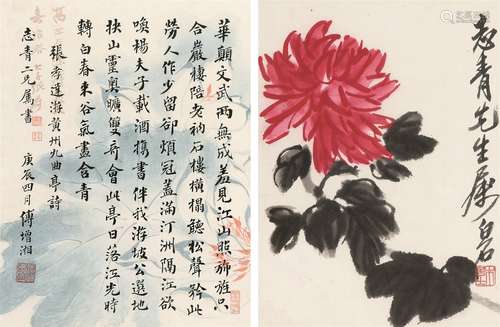 華顛文武兩無成羞見江山照旆旌只
合巖棲陪老衲石樓橫榻聽松聲矜此
勞人作少留卻煩冠蓋滿汀洲隔江欲
喚楊夫子載酒攜書伴我游坡公選地
扶山靈奧曠雙奇會此亭日落江光時
轉白春來谷氣盡含青
張孝達游黃州九曲亭詩
志青二兄屬書
庚辰四月傅增湘
志青先生屬白石